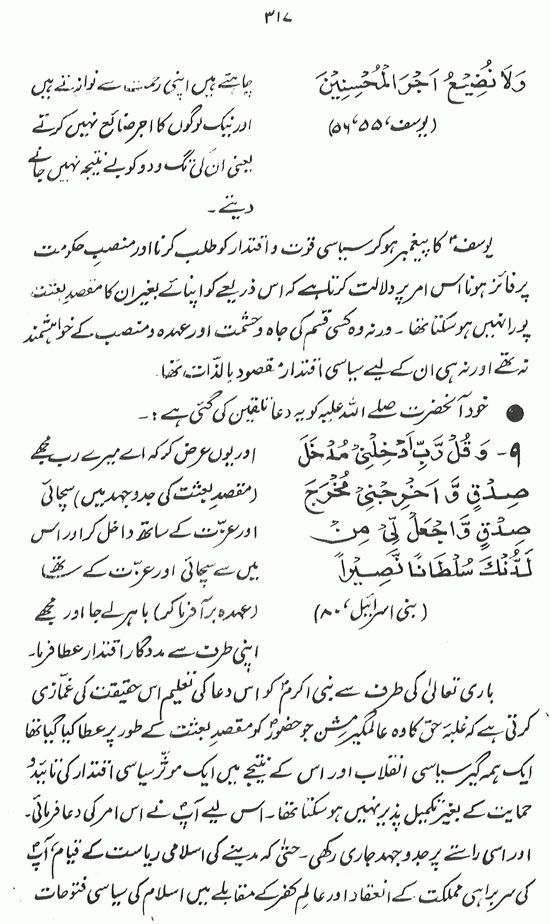 ۳۱۷
وَلَا نُضِيْعُ اَجْرَ الْمُحْسِنِيْنَ
(یوسف، ۵۵، ۵۶)
چاہتے ہیں اپنی رحمت سے نوازتے ہیں
اور نیک لوگوں کا اجر ضائع نہیں کرتے
یعنی ان کی تگ و دو کو بے نتیجہ نہیں جانے
دیتے۔
یوسفؑ کا پیغمبر ہو کر سیاسی قوت و اقتدار کو طلب کرنا اور منصبِ حکومت
پر فائز ہونا اس امر پر دلالت کرتا ہے کہ اس ذریعے کو اپنائے بغیر ان کا مقصدِ بعثت
پورا نہیں ہو سکتا تھا۔ ورنہ وہ کسی قسم کی جاہ و حشمت اور عہدہ و منصب کے خواہشمند
نہ تھے اور نہ ہی ان کے لیے سیاسی اقتدار مقصود بالذات تھا۔
● خود آنحضرت صلے اللہ علیہ کو یہ دعا تلقین کی گئی ہے:۔
۹۔ وَقُلْ رَّبِّ اَدْخِلْنِيْ مُدْخَلَ
صِدْقٍ وَّ اَخْرِجْنِيْ مُخْرَجَ
صِدْقٍ وَّاجْعَلْ لِّيْ مِنْ
لَّدُنْكَ سُلْطَانًا نَّصِيْراً
(بنی اسرائیل، ۸۰)
اور یوں عرض کو کہ اے میرے رب مجھے
(مقصدِ بعثت کی جدوجہد میں) سچائی
اور عزت کے ساتھ داخل کر اور اس
میں سے سچائی اور عزت کے ساتھ
(عہدہ برآ فرما کر) باہر لے جا اور مجھے
اپنی طرف سے مددگار اقتدار عطا فرما۔
باری تعالیٰ کی طرف سے نبی اکرمؐ کو اس دعا کی تعلیم اس حقیقت کی غمازی
کرتی ہے کہ غلبۂ حق کا وہ عالمگیر مشن جو حضورؐ کو مقصدِ بعثت کے طور پر عطا کیا گیا تھا
ایک ہمہ گیر سیاسی انقلاب اور اس کے نتیجے میں ایک موثر سیاسی اقتدار کی تائید و
حمایت کے بغیر تکمیل پذیر نہیں ہو سکتا تھا۔ اس لیے آپؐ نے اس امر کی دعا فرمائی۔
اور اسی راستے پر جدوجہد جاری رکھی۔ حتیٰ کہ مدینے کی اسلامی ریاست کے قیام، آپؐ
کی سربراہی مملکت کے انعقاد اور عالمِ کفر کے مقابلے میں اسلام کی سیاسی فتوحات